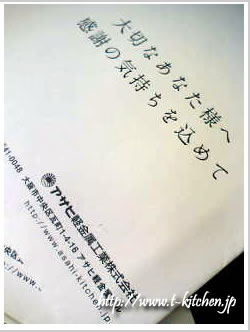 大切なあなた様へ
感謝の気持ちを込めて
アサヒ軽金属工業株式会社
541-0048
大阪市中央区瓦町1-4-16 アサヒ軽金
http://www.asahi-kitchen.jp
http://www.t-kitchen.jp